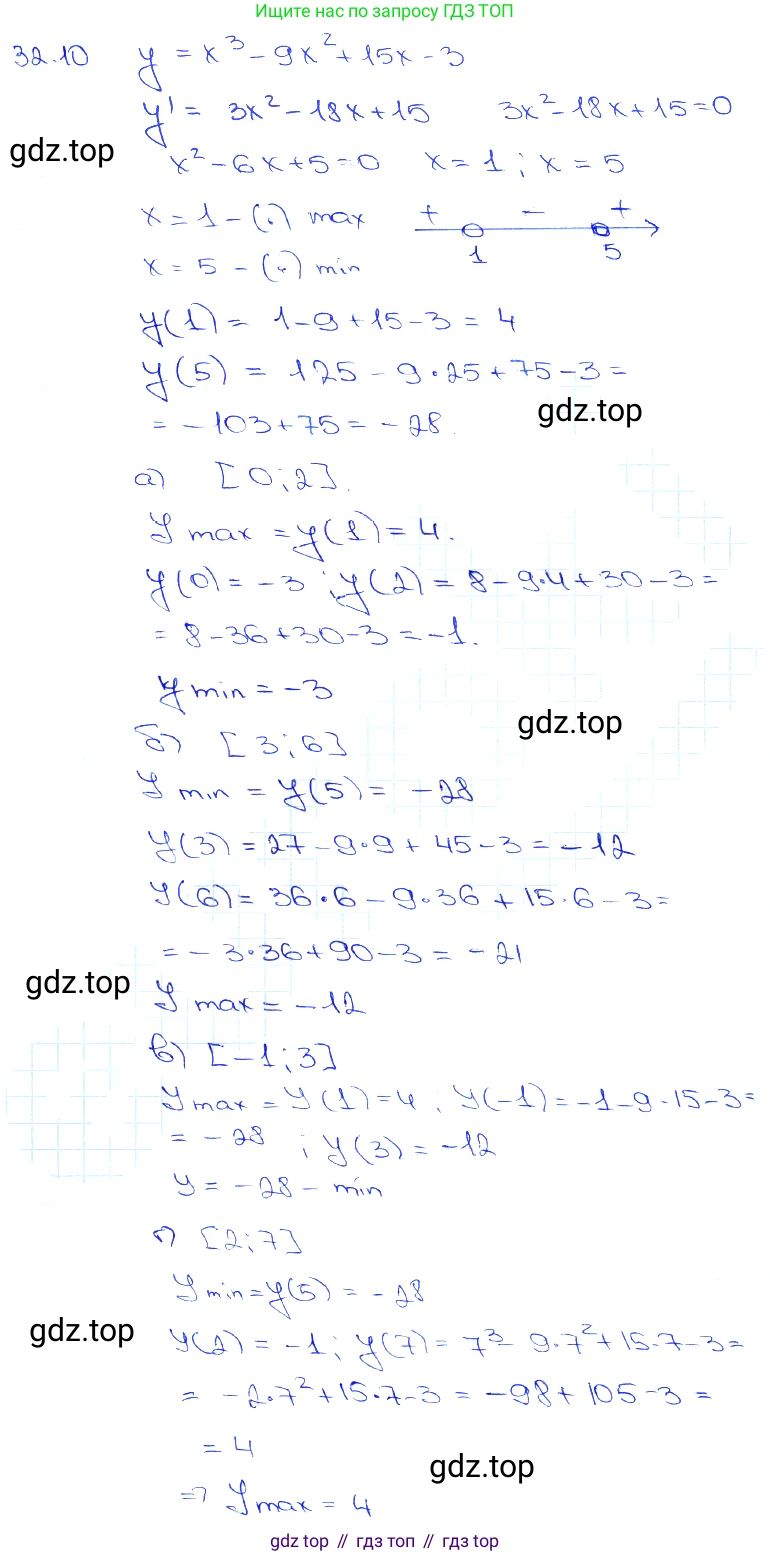 Ищите нас по запросу ГДЗ ТОП
32.10 y = x³ - 9x² + 15x - 3
y' = 3x² - 18x + 15 3x² - 18x + 15 = 0
gdz.top
x² - 6x + 5 = 0 x = 1 ; x = 5
x = 1 - (.) max + - +
x = 5 - (.) min 1 5
y(1) = 1 - 9 + 15 - 3 = 4
y(5) = 125 - 9·25 + 75 - 3 =
gdz.top
= -103 + 75 = -28
а) [0;2].
y max = y(1) = 4.
y(0) = -3 ; y(2) = 8 - 9·4 + 30 - 3 =
= 8 - 36 + 30 - 3 = -1.
y min = -3
gdz.top
б) [3;6]
y min = y(5) = -28
y(3) = 27 - 9·9 + 45 - 3 = -12
y(6) = 36·6 - 9·36 + 15·6 - 3 =
= -3·36 + 90 - 3 = -21
gdz.top
y max = -12
в) [-1;3]
y max = y(1) = 4 ; y(-1) = -1 - 9 - 15 - 3 =
= -28 ; y(3) = -12
y = -28 - min
г) [2;7]
y min = y(5) = -28
gdz.top
y(2) = -1 ; y(7) = 7³ - 9·7² + 15·7 - 3 =
= -2·7² + 15·7 - 3 = -98 + 105 - 3 =
= 4
gdz.top
=> y max = 4
gdz top // гдз топ // gdz.top